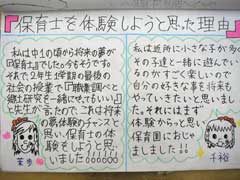 『保育士を体験しようと思った理由』
私は中1の頃から将来の夢が
『保育士』でした。今もそうです。
それで2年生1学期の最後の
社会の授業で『職業調べと
郷土研究を一緒にせてもいい』
と先生が言たので、これは将来
の夢体験のチャンスと
思い、保育士の体
験をしようと思い
ました!!
茉歩
私は近所に小さな子が多く
その子達と一緒に遊んでい
るのがすごく楽しいので
自分の好きな事を将来も
やっていきたいと思いまし
た。それにはまず
体験からと思い
保育園におじゃ
ましました!!
千裕